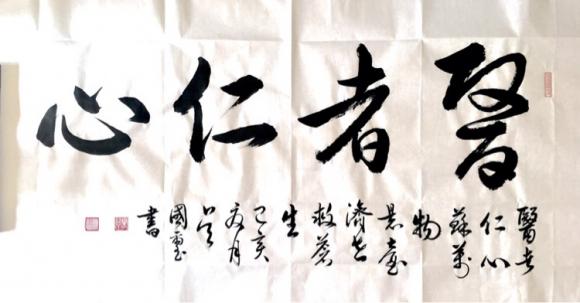 醫者仁心
醫者
仁心
蘇萬
物
悬壺
濟世
救蒼
生
己亥
夏月
國重
書